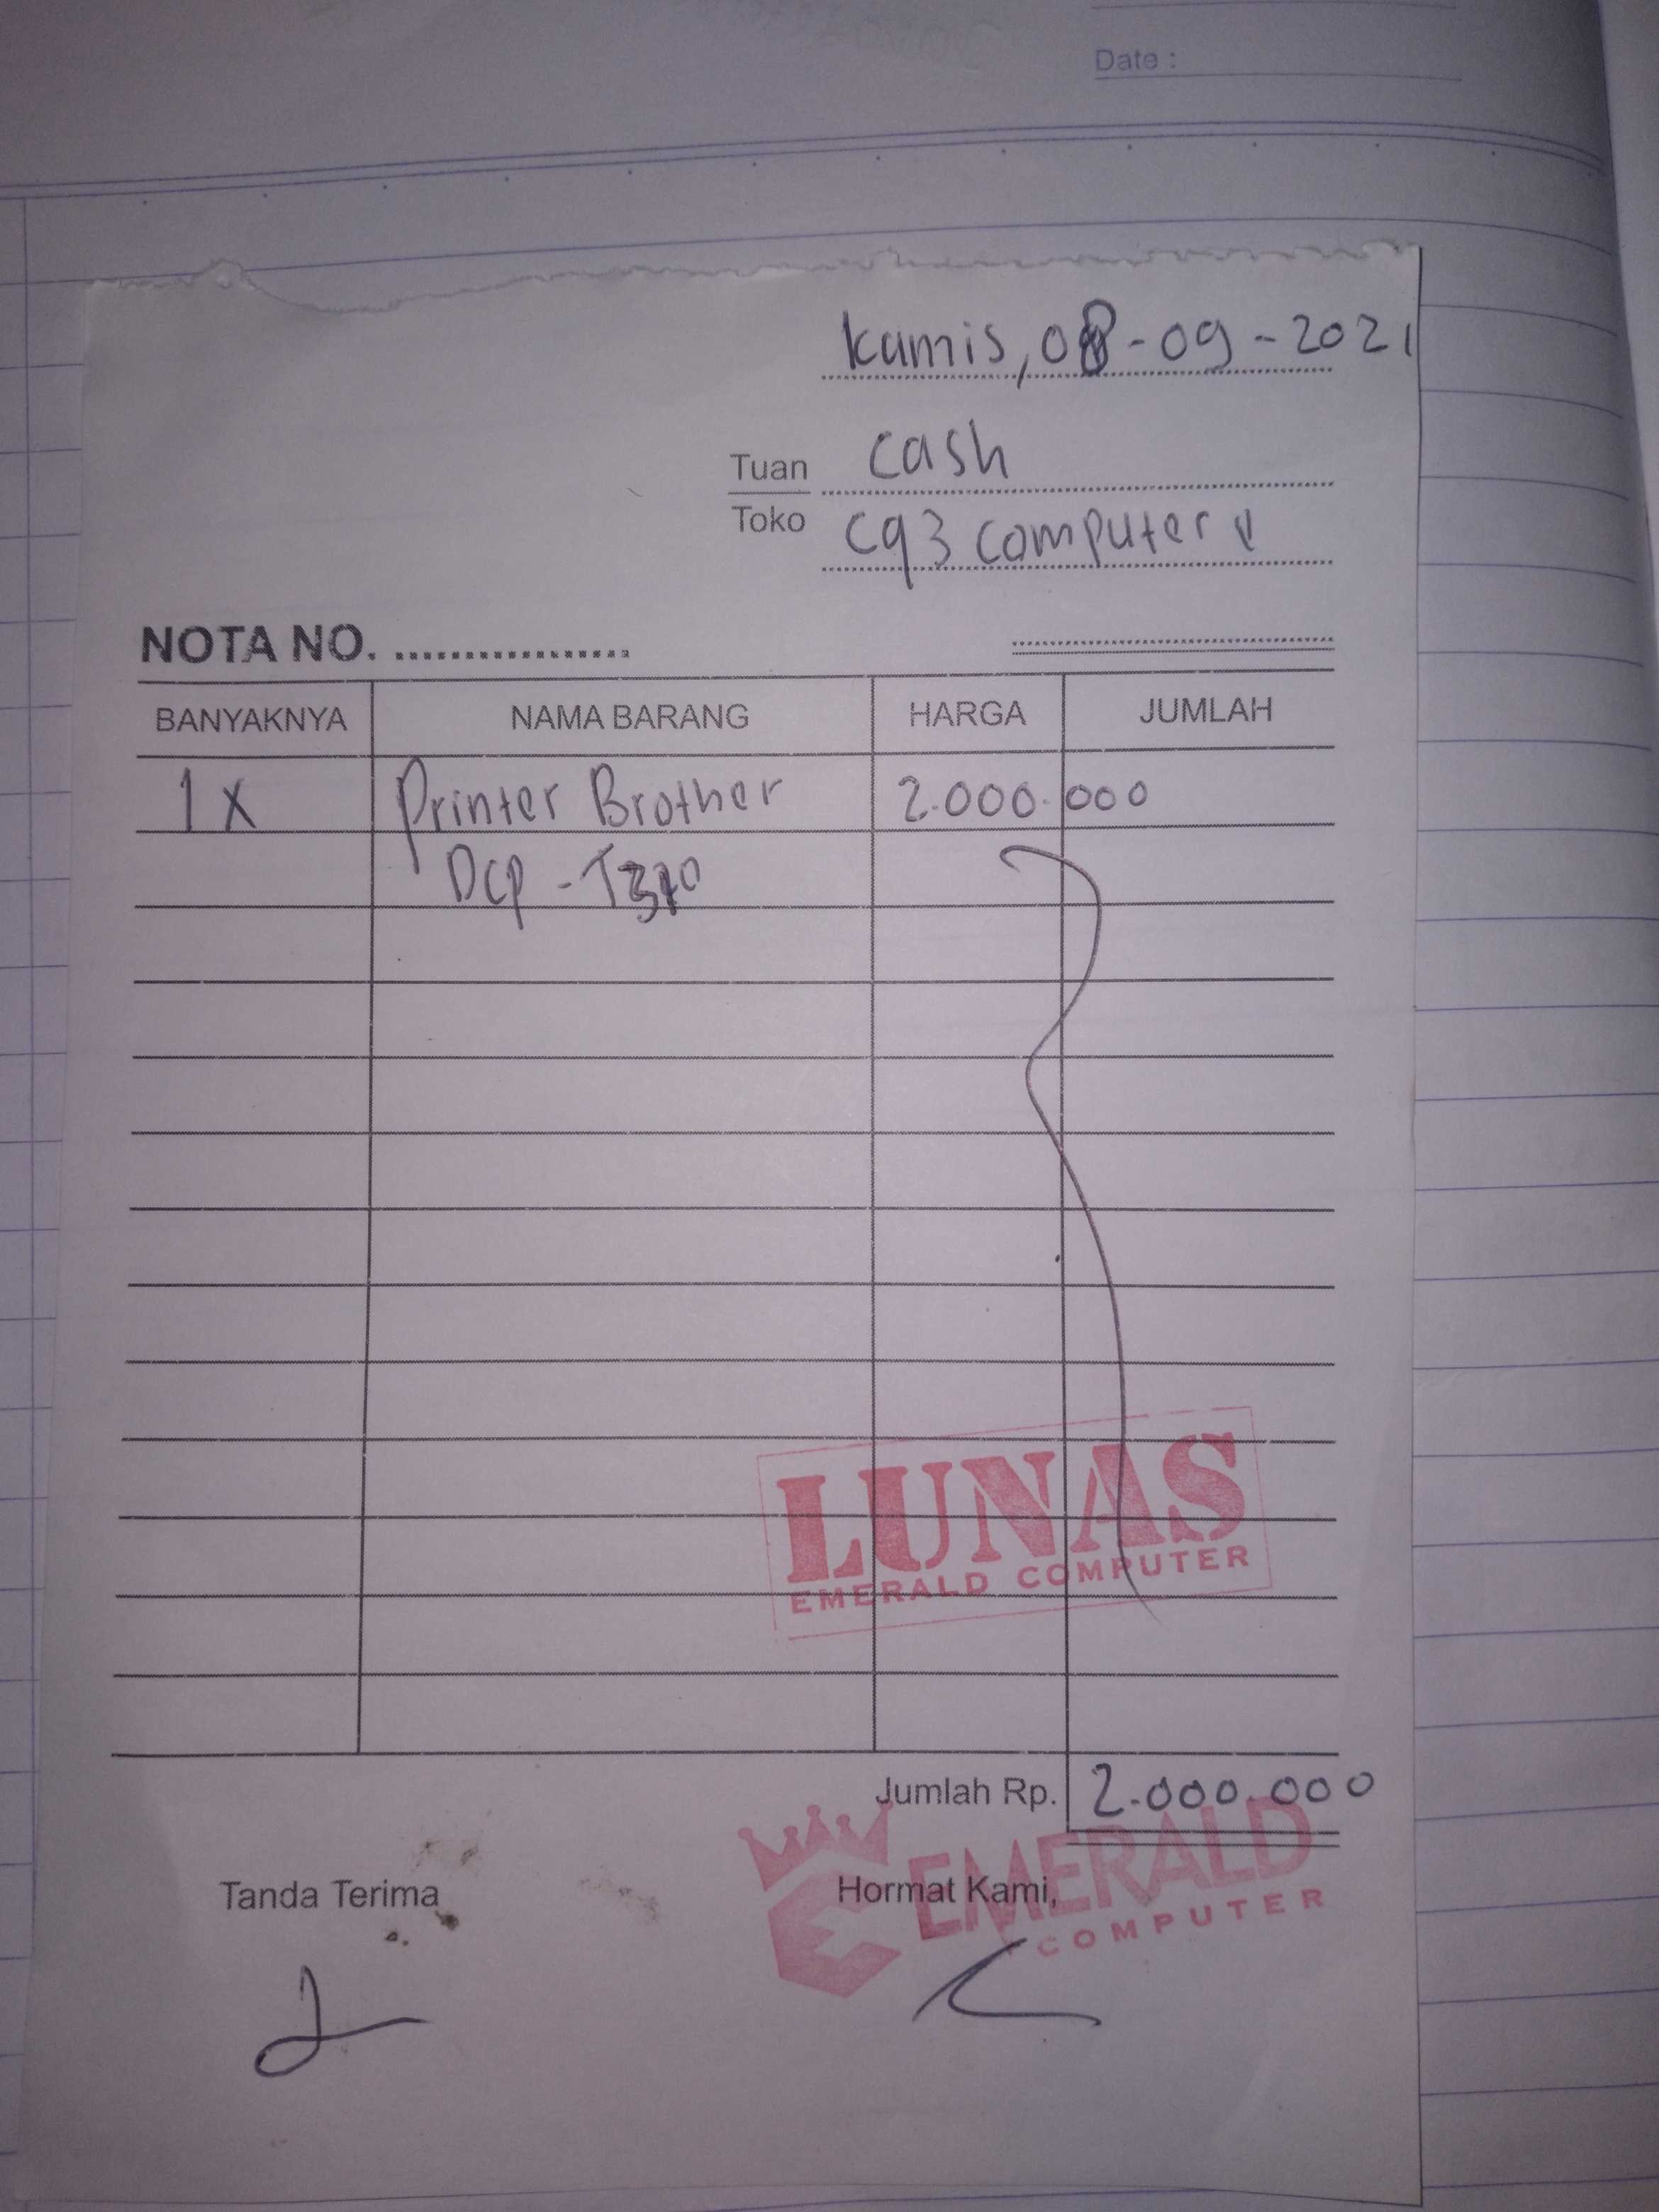 Date :
kamis, 08-09-2021
Tuan cash
Toko cq3 computer
NOTA NO. ..................
BANYAKNYA NAMA BARANG HARGA JUMLAH
1 x Printer Brother 2.000.000
Dcp -
LUNAS
EMERALD COMPUTER
Jumlah Rp. 2.000.000
Tanda Terima Hormat Kami,
EMERALD
COMPUTER